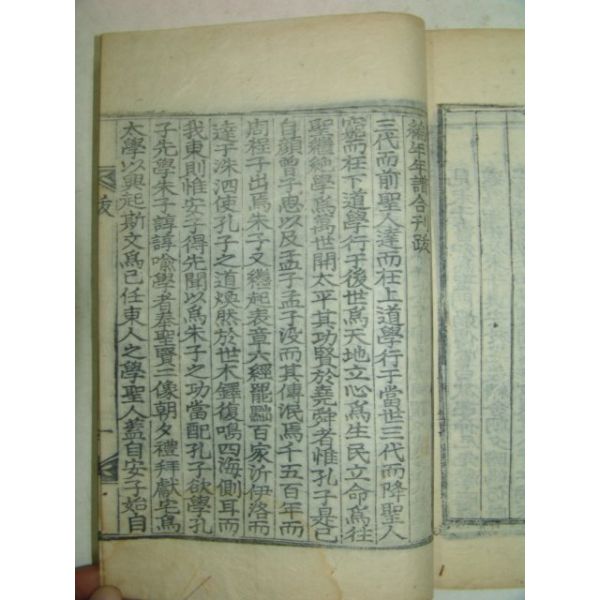 編年年譜合刊跋
三代而前聖人達而在上道學行于當世三代而降聖人
窮而在下道學行于後世爲天地立心爲生民立命爲往
聖繼絶學爲萬世開太平其功賢於堯舜者惟孔子是已
自顔曾子思以及孟子孟子没而其傳泯焉千五百年而
周程子出焉朱子又繼起表章六經罷黜百家沂伊洛而
達于洙泗使孔子之道煥然於世木鐸復鳴四海側耳而
我東則惟安子得先聞以爲朱子之功當配孔子欲學孔
子先學朱子諄諄喩學者奉聖賢二像朝夕禮拜獻宅爲
太學以興起斯文爲己任東人之學聖人蓋自安子始自
跋
一